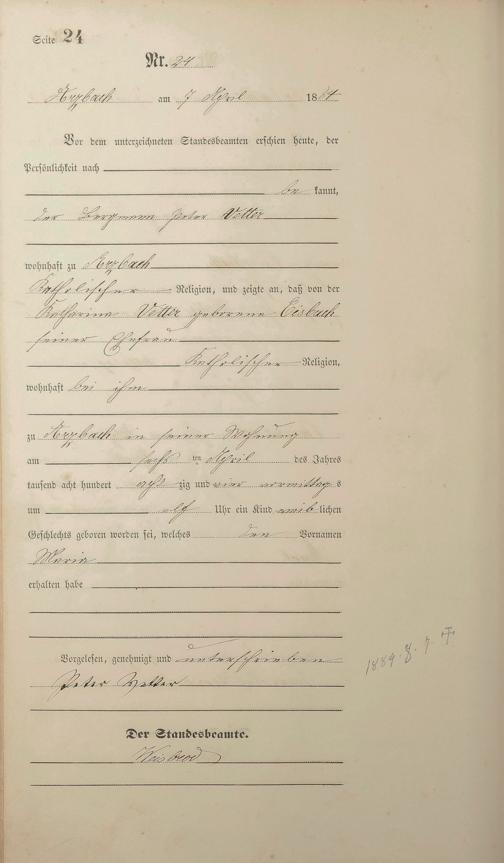 Seite 24
Nr. 24
Arzbach am 7 April 1884
Vor dem unterzeichneten Standesbeamten erschien heute, der
Persönlichkeit nach
be kannt,
der Bergmann Peter Vetter
wohnhaft zu Arzbach
Katholischer Religion, und zeigte an, daß von der
Katharina Vetter geborene Eisbach
seiner Ehefrau
Katholischer Religion,
wohnhaft bei ihm
zu Arzbach in seiner Wohnung
am sechs ten April des Jahres
tausend acht hundert acht zig und vier vormittag s
um elf Uhr ein Kind weib lichen
Geschlechts geboren worden sei, welches den Vornamen
Maria
erhalten habe
Vorgelesen, genehmigt und unterschrieben
Peter Vetter
Der Standesbeamte.
Weisbrod